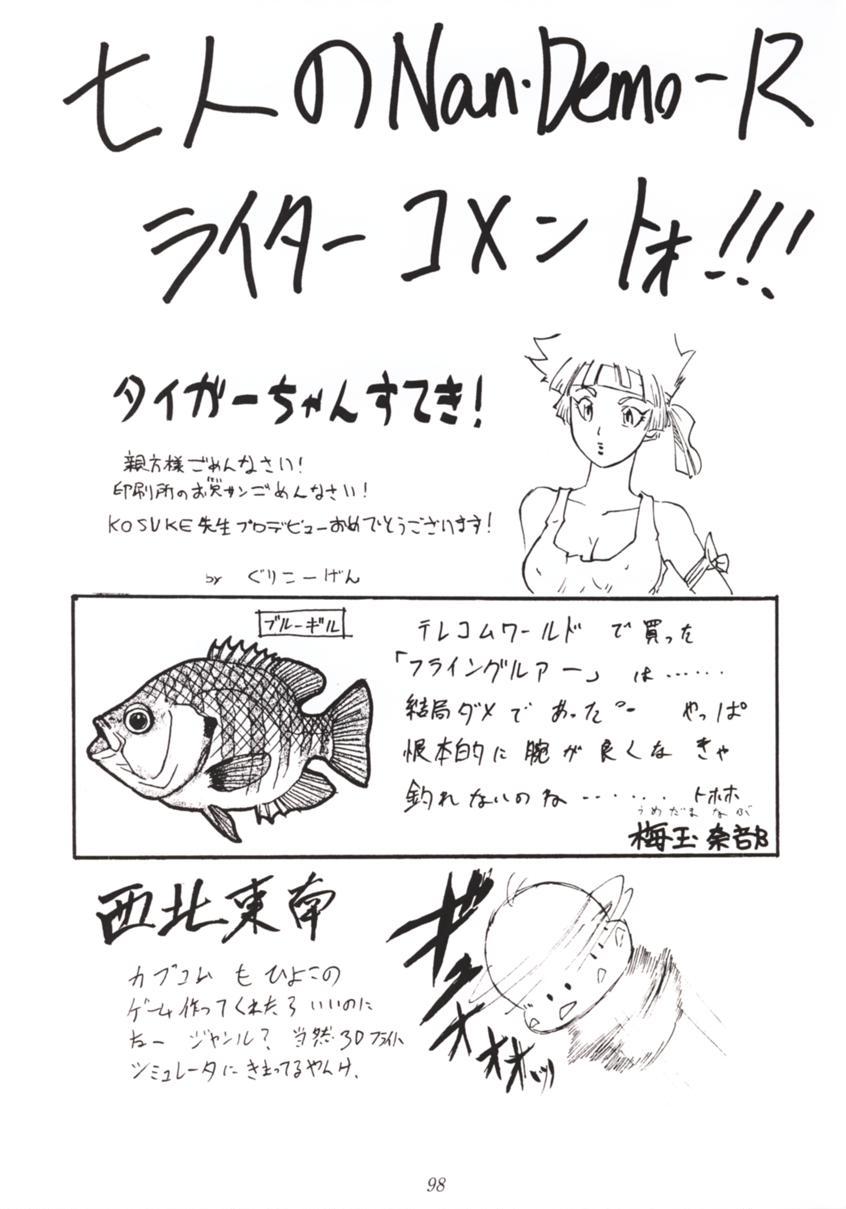 七人のNan・Demo-R
ライターコメントォ!!!
タイガーちゃんすてき!
親方様ごめんなさい!
印刷所のお兄サンごめんなさい!
KOSUKE先生プロデビューおめでとうございます!
by ぐりこーげん
ブルーギル
テレコムワールドで買った
「フライングルアー」は……
結局ダメであった。 やっぱ
根本的に腕が良くなきゃ
釣れないのね…… トホホ
うめだまなぶ
梅玉奈部
西北東南
カプコムもひよこの
ゲーム作ってくれたらいいのに
なー ジャンル? 当然・3Dフライト
シミュレータにきまってるやんけ、
ギュオオオオッッ
98